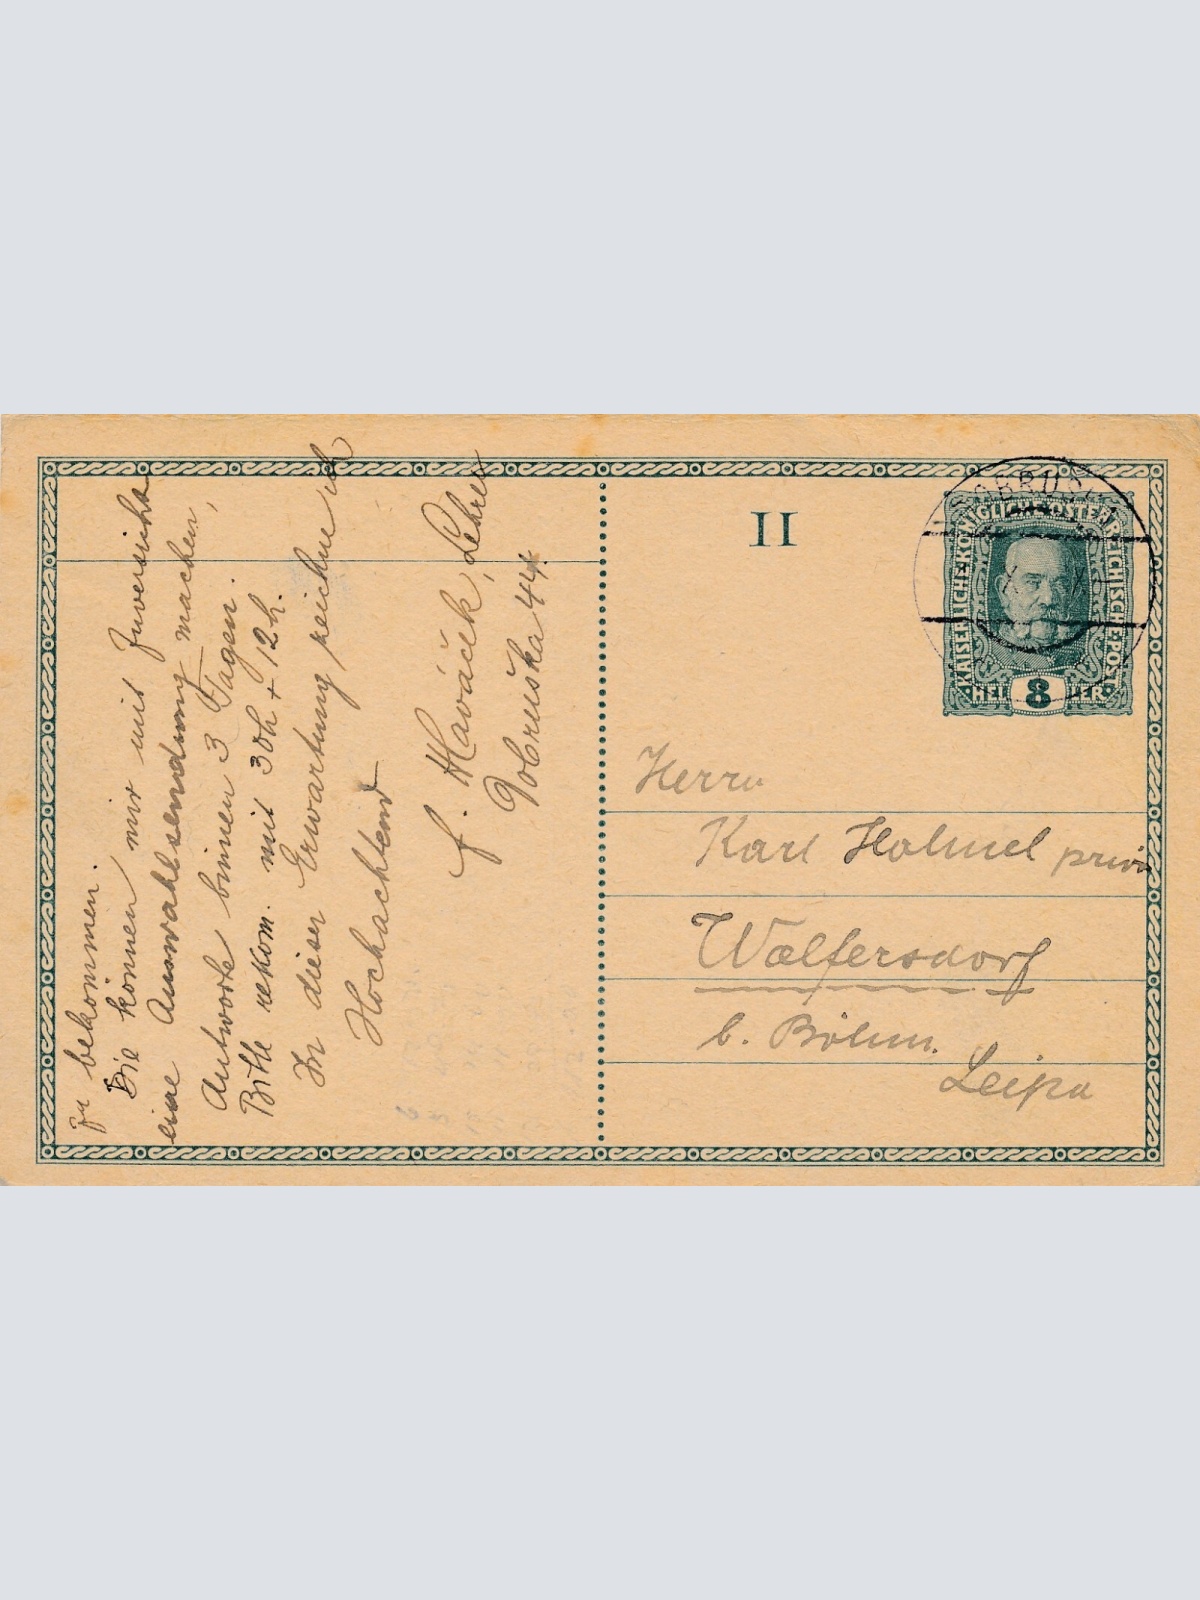 zu bekommen.
Die können mir mit Zuversicht
eine Auswahlsendung machen,
Antworte binnen 3 Tagen.
Bitte rekom. mit 30h + 12h.
In dieser Erwartung zeichne ich
Hochachtend
f. Hlaváček, Lehrer
Dobruška 44.
II
KAISERLICHE KÖNIGLICHE ÖSTERREICHISCHE POST
HELLER
8
Herrn
Karl Hohmel
Wolfersdorf
b. Böhm.
Leipa